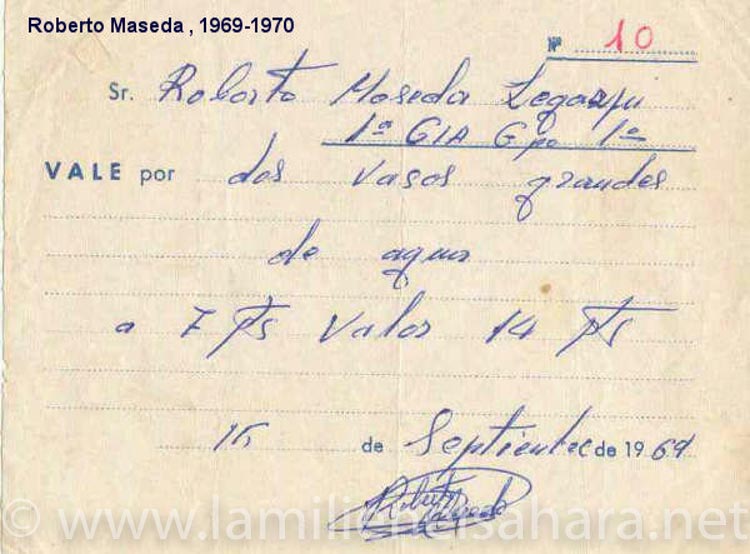 Roberto Maseda , 1969-1970
Nº 10
Sr. Roberto Maseda
1ª CIA Gpo 1º
VALE por dos vasos grandes
de agua
a 7 Pts Valor 14 Pts
de Septiembre de 1969
Roberto Maseda
© www.lamilienelsahara.net